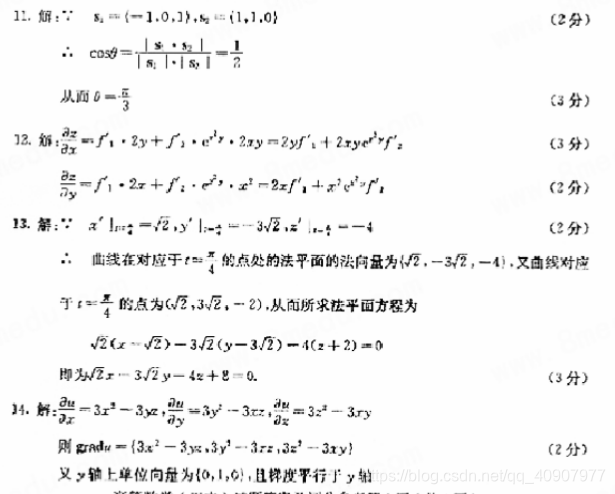 11. 解:∵ s₁={-1,0,1},s₂={1,1,0} (2分)
∴ cosθ=|s₁·s₂|/|s₁|·|s₂|=1/2
从而 θ=π/3 (3分)
12. 解:∂z/∂x=f′₁·2y+f′₂·e^{x²y}·2xy=2yf′₁+2xye^{x²y}f′₂ (3分)
∂z/∂y=f′₁·2x+f′₂·e^{x²y}·x²=2xf′₁+x²e^{x²y}f′₂ (2分)
13. 解:∵ x′|t=π/4=√2,y′|t=π/4=-3√2,z′|t=π/4=-4 (2分)
∴ 曲线在对应于 t=π/4 的点处的法平面的法向量为{√2,-3√2,-4},又曲线对应
于 t=π/4 的点为(√2,3√2,-2),从而所求法平面方程为
√2(x-√2)-3√2(y-3√2)-4(z+2)=0
即为√2x-3√2y-4z+8=0. (3分)
14. 解:∂u/∂x=3x²-3yz,∂u/∂y=3y²-3xz,∂u/∂z=3z²-3xy
则 gradu={3x²-3yz,3y²-3xz,3z²-3xy} (2分)
又 y 轴上单位向量为{0,1,0},且梯度平行于 y 轴
https://blog.csdn.net/qq_40907977